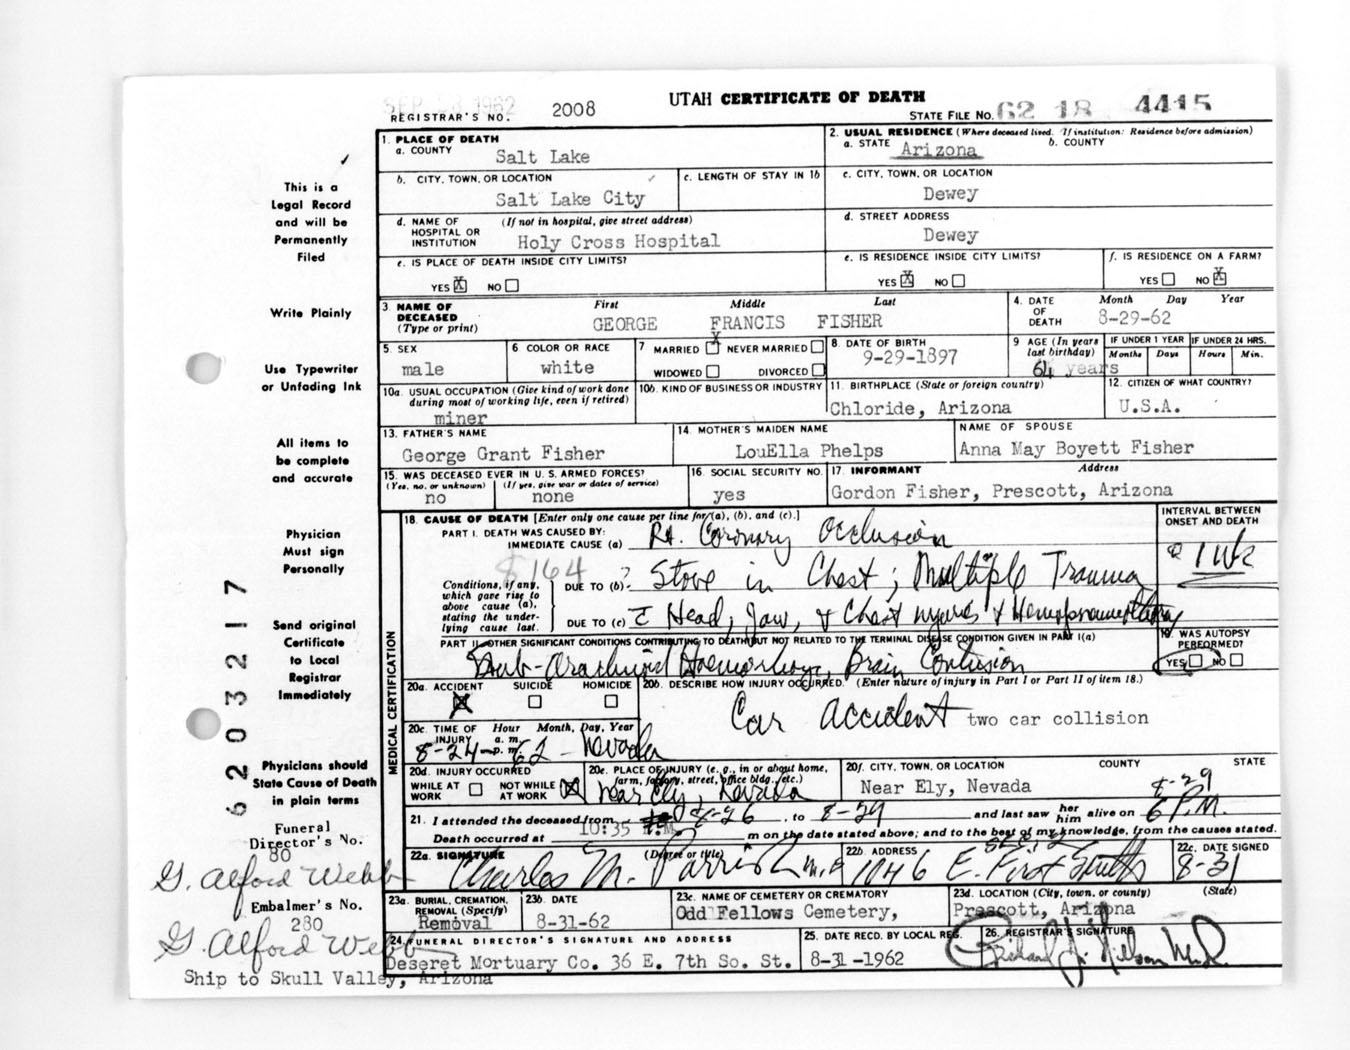 SEP 28 1962
REGISTRAR'S NO. 2008
UTAH CERTIFICATE OF DEATH
STATE FILE NO. 62 18 4415
This is a
Legal Record
and will be
Permanently
Filed
Write Plainly
Use Typewriter
or Unfading Ink
All items to
be complete
and accurate
Physician
Must sign
Personally
Send original
Certificate
to Local
Registrar
Immediately
Physicians should
State Cause of Death
in plain terms
Funeral
Director's No.
80
G. Alford Webb
Embalmer's No.
280
G. Alford Webb
620303217
1. PLACE OF DEATH
a. COUNTY Salt Lake
b. CITY, TOWN, OR LOCATION
Salt Lake City
c. LENGTH OF STAY IN 1b
d. NAME OF HOSPITAL OR INSTITUTION (If not in hospital, give street address)
Holy Cross Hospital
e. IS PLACE OF DEATH INSIDE CITY LIMITS?
YES X NO
2. USUAL RESIDENCE (Where deceased lived. If institution: Residence before admission)
a. STATE Arizona b. COUNTY
c. CITY, TOWN, OR LOCATION
Dewey
d. STREET ADDRESS
Dewey
e. IS RESIDENCE INSIDE CITY LIMITS?
YES X NO
f. IS RESIDENCE ON A FARM?
YES NO X
3. NAME OF DECEASED (Type or print)
First Middle Last
GEORGE FRANCIS FISHER
4. DATE OF DEATH Month Day Year
8-29-62
5. SEX
male
6 COLOR OR RACE
white
7 MARRIED X NEVER MARRIED
WIDOWED DIVORCED
8. DATE OF BIRTH
9-29-1897
9 AGE (In years last birthday)
64 years
IF UNDER 1 YEAR IF UNDER 24 HRS.
Months Days Hours Min.
10a. USUAL OCCUPATION (Give kind of work done during most of working life, even if retired)
miner
10b. KIND OF BUSINESS OR INDUSTRY
11. BIRTHPLACE (State or foreign country)
Chloride, Arizona
12. CITIZEN OF WHAT COUNTRY?
U.S.A.
13. FATHER'S NAME
George Grant Fisher
14. MOTHER'S MAIDEN NAME
LouElla Phelps
NAME OF SPOUSE
Anna May Boyett Fisher
15. WAS DECEASED EVER IN U. S. ARMED FORCES?
(Yes, no, or unknown) (If yes, give war or dates of service)
no none
16. SOCIAL SECURITY NO.
yes
17. INFORMANT Address
Gordon Fisher, Prescott, Arizona
MEDICAL CERTIFICATION
18. CAUSE OF DEATH [Enter only one cause per line for (a), (b), and (c).]
INTERVAL BETWEEN ONSET AND DEATH
PART I. DEATH WAS CAUSED BY:
IMMEDIATE CAUSE (a) Rt. Coronary Occlusion
1 wk
$164
Conditions, if any, which gave rise to above cause (a), stating the underlying cause last.
DUE TO (b) Stove in Chest; Multiple Trauma
DUE TO (c) c̄ Head, Jaw, & Chest
PART II. OTHER SIGNIFICANT CONDITIONS CONTRIBUTING TO DEATH BUT NOT RELATED TO THE TERMINAL DISEASE CONDITION GIVEN IN PART I(a)
Sub-arachnoid Haemorrhage, Brain Contusion
19. WAS AUTOPSY PERFORMED?
YES NO
20a. ACCIDENT X SUICIDE HOMICIDE
20b. DESCRIBE HOW INJURY OCCURRED. (Enter nature of injury in Part I or Part II of item 18.)
Car accident two car collision
20c. TIME OF INJURY Hour a. m. p. m. Month, Day, Year
8-24-62 - Nevada
20d. INJURY OCCURRED
WHILE AT WORK NOT WHILE AT WORK X
20e. PLACE OF INJURY (e. g., in or about home, farm, factory, street, office bldg., etc.)
near Ely, Nevada
20f. CITY, TOWN, OR LOCATION COUNTY STATE
Near Ely, Nevada
21. I attended the deceased from 8-26, to 8-29 and last saw her him alive on 8-29 6 P.M.
Death occurred at 10:35 P.M. m on the date stated above; and to the best of my knowledge, from the causes stated.
22a. SIGNATURE (Degree or title)
Charles M. Parrish M.D.
22b. ADDRESS
1046 E. First South
22c. DATE SIGNED
8-31
23a. BURIAL, CREMATION, REMOVAL (Specify)
Removal
23b. DATE
8-31-62
23c. NAME OF CEMETERY OR CREMATORY
Odd Fellows Cemetery,
23d. LOCATION (City, town, or county) (State)
Prescott, Arizona
24. FUNERAL DIRECTOR'S SIGNATURE AND ADDRESS
Deseret Mortuary Co. 36 E. 7th So. St.
25. DATE RECD. BY LOCAL REG.
8-31-1962
26. REGISTRAR'S SIGNATURE
Ship to Skull Valley, Arizona